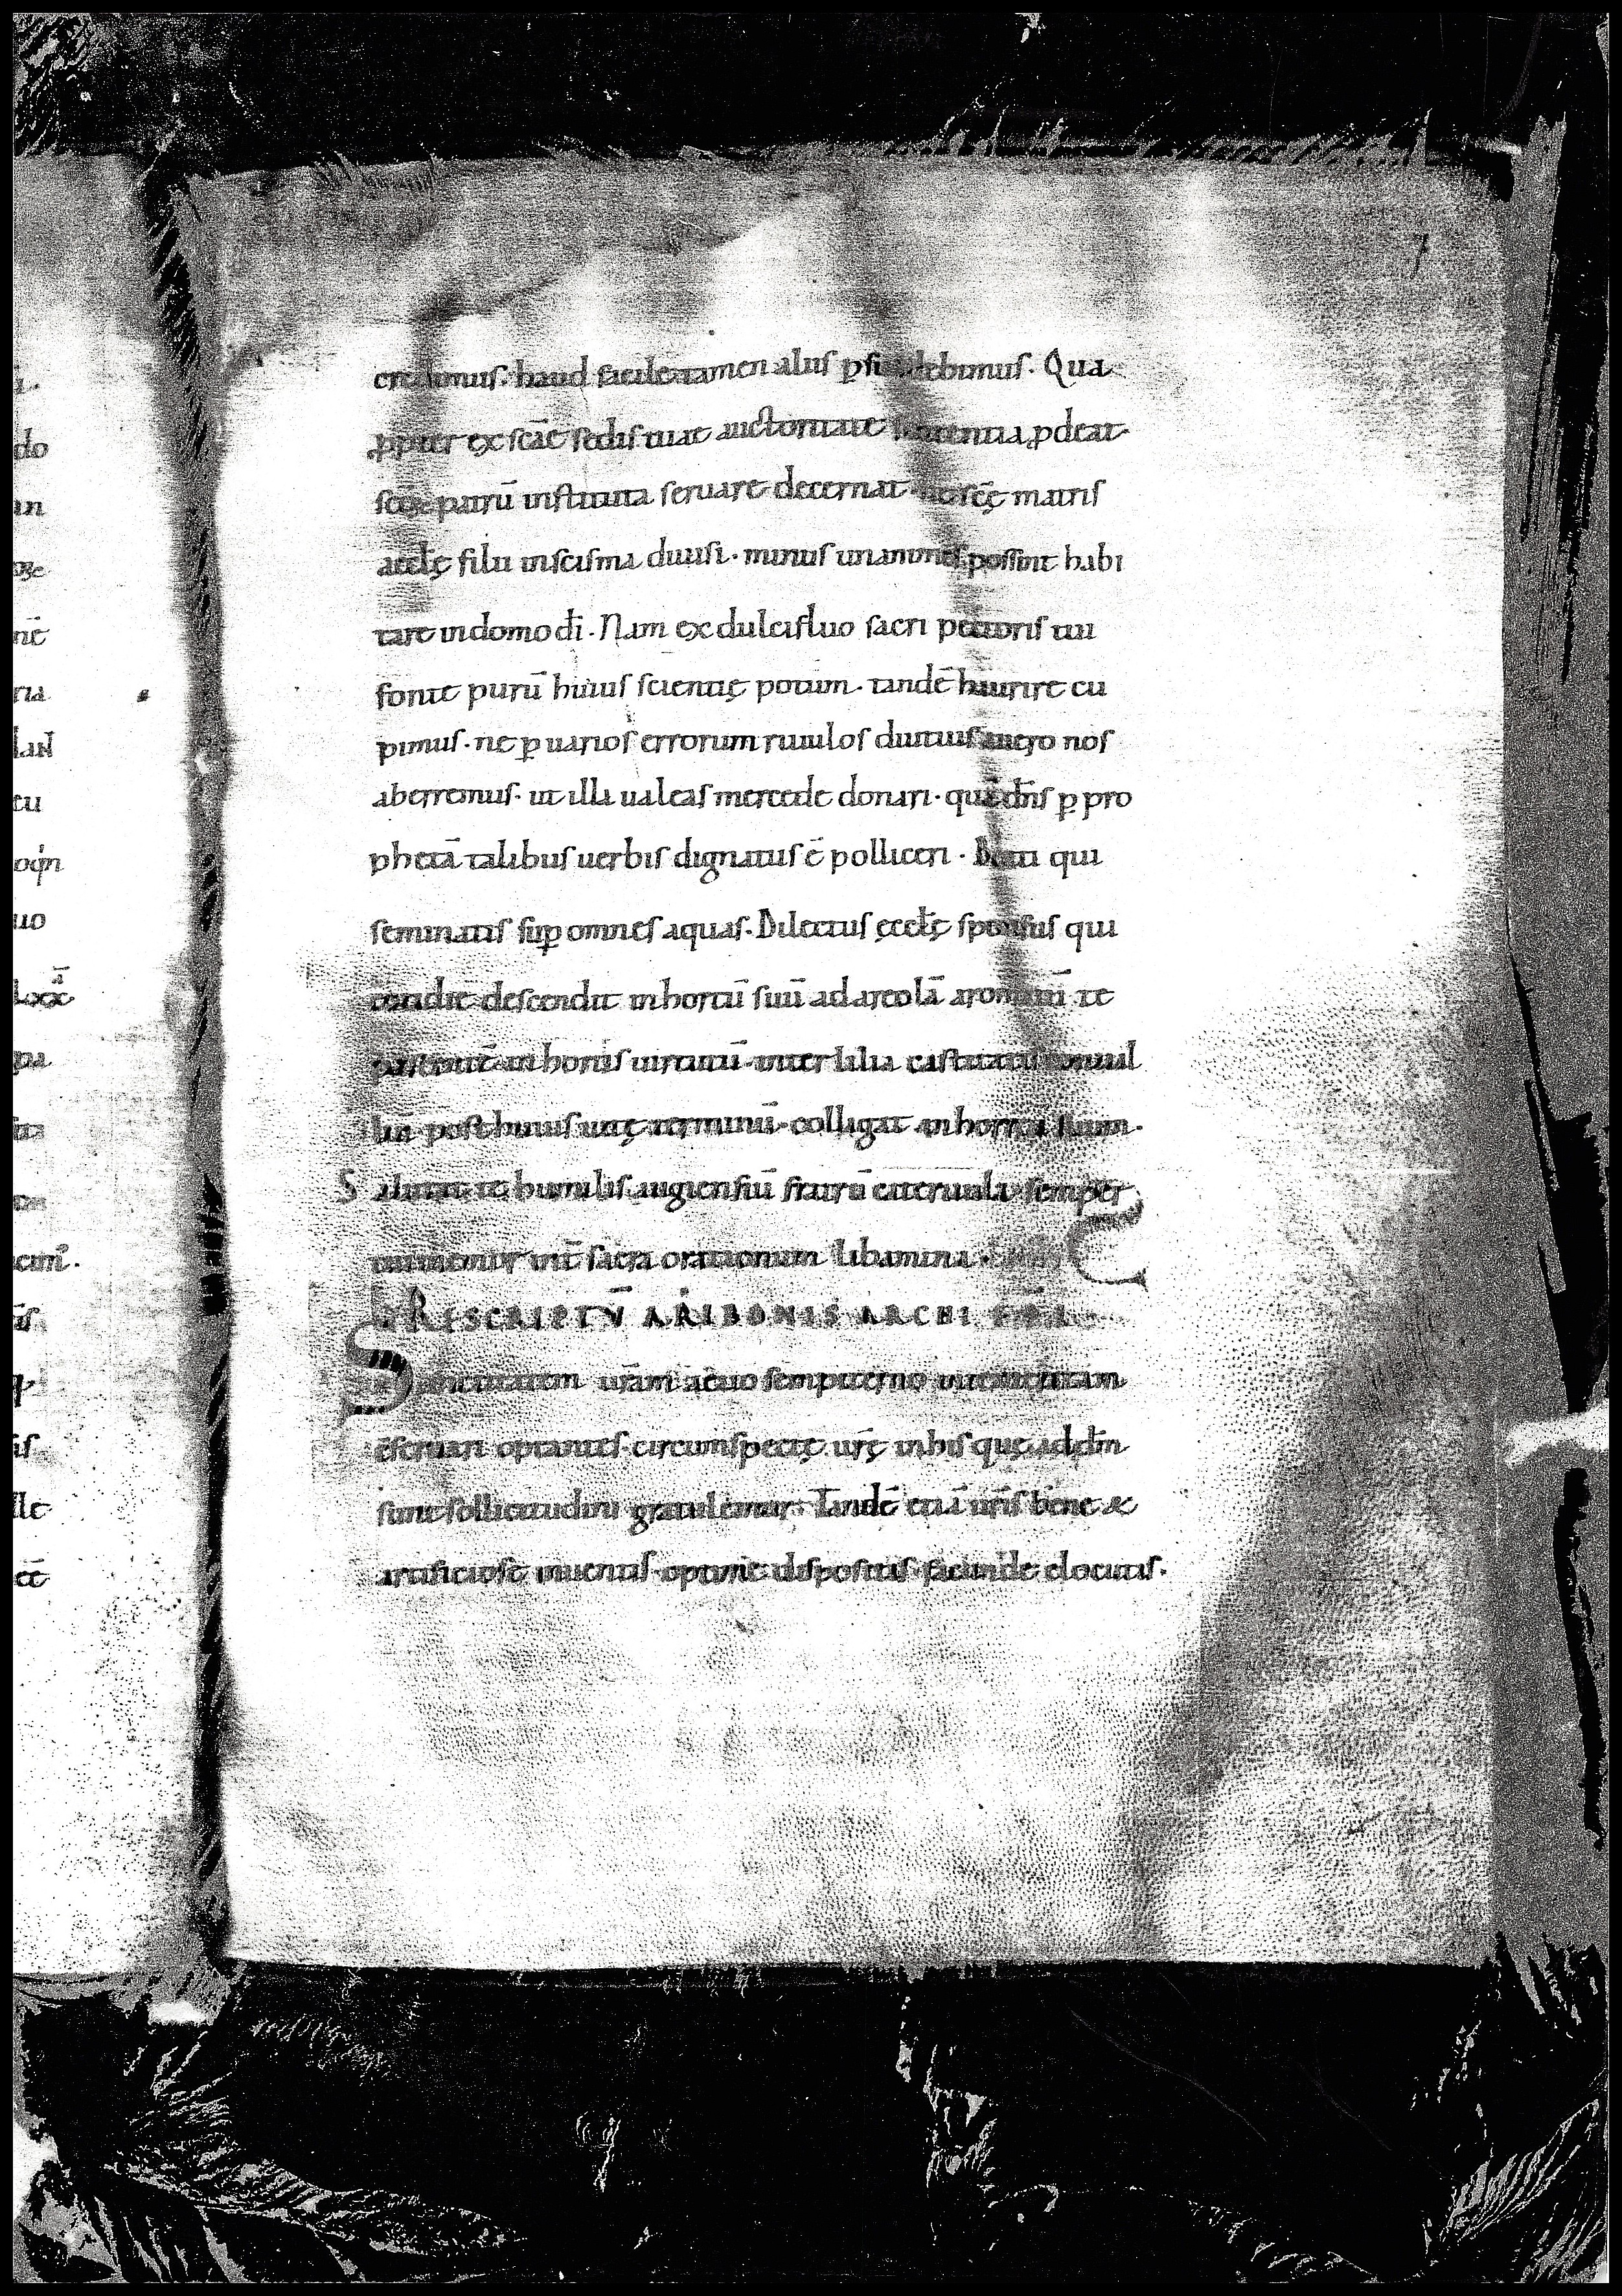 credimus. haud facile tamen aliis ꝑsuadebimus. Qua
ꝓpter ex scāe sedis tuae auctoritate sententia ꝓdeat
scōꝝ patrū instituta seruare decernat. ne scę matris
aeccłę filii in scisma diuisi. minus unanimes possint habi
tare in domo dī. Nam ex dulcifluo sacri pectoris tui
fonte purū huius scientię potum. tandē haurire cu
pimus. ne ꝑ uarios errorum riuulos diutius uero nos
aberremus. ut illa ualeas mercede donari. quā dn̄s ꝑ pro
phetā talibus uerbis dignatus ē polliceri. Beati qui
seminatis suꝑ omnes aquas. Dilectus ęccłę sponsus qui
cotidie descendit in hortū suū ad areolā aromatū te
in hortis uirtutū inter lilia castitatis
post huius uitę terminū. colligat in horrea suum.
Salutat te humilis augiensiū fratrū cateruula. semper
int̄ sacra orationum libamina.
RESCRIPTV̄ ARIBONIS ARCHI EP̄I
Sanctitatem urām aeuo sempiterno
cseruari optantes. circumspectę urę in his quę ad dm̄
sunt sollicitudini gratulamur. Tandē etiā uris bene &
artificiose inuentis. optime dispositis. facunde elocutis.
do
an
nē
ria
tu
uo
pa
is
lle